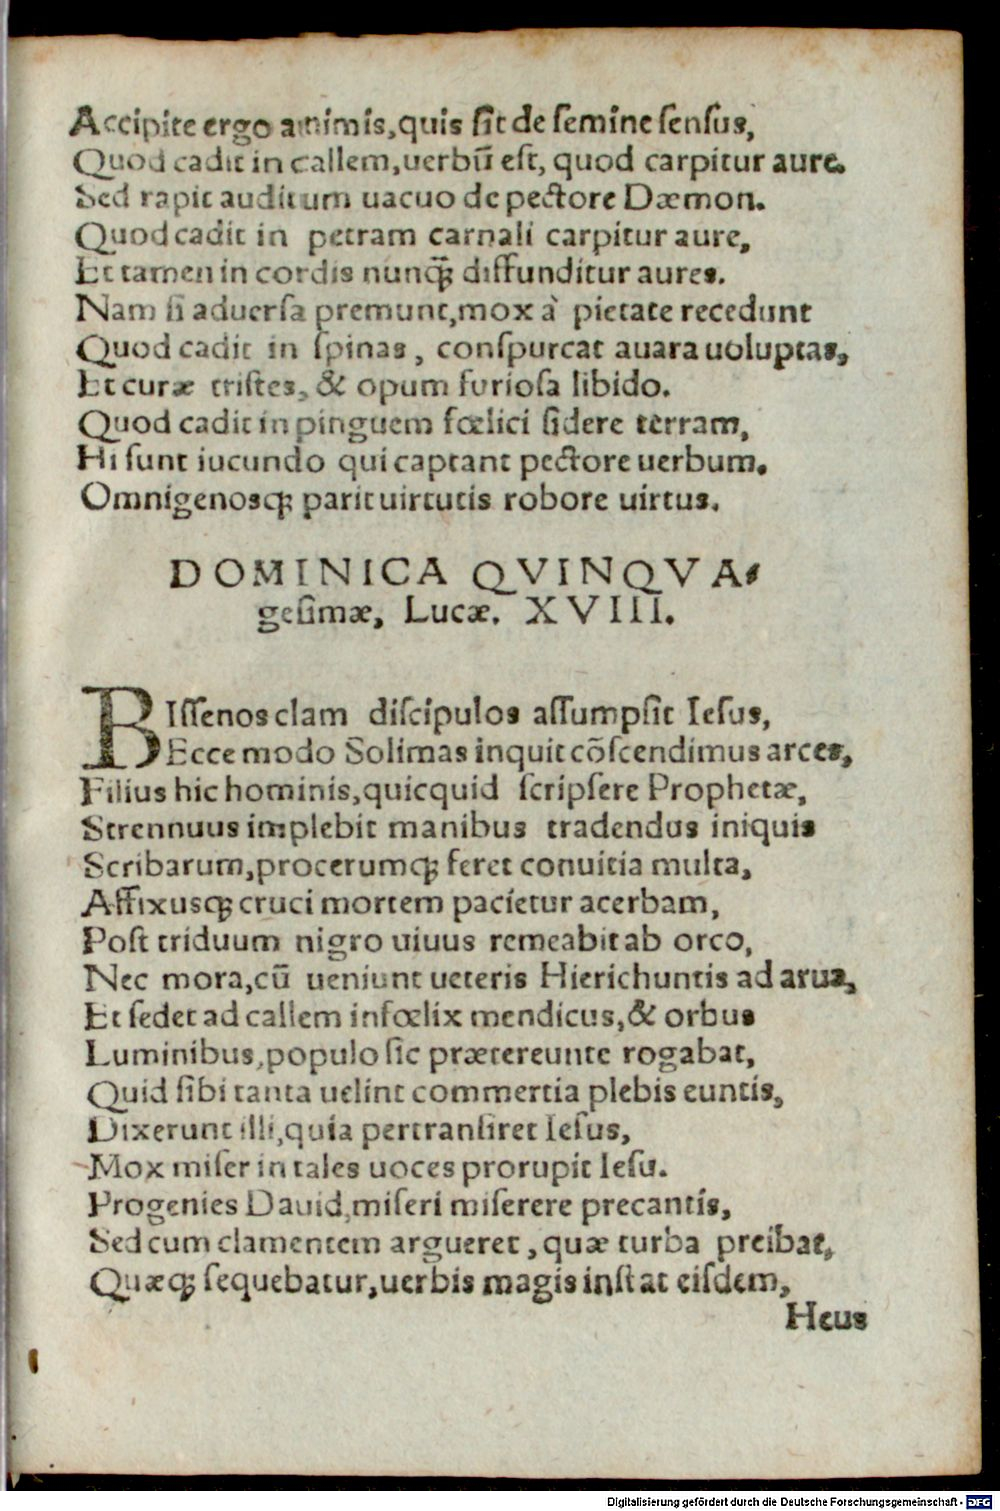 Accipite ergo animis,quis ſit de ſemine ſenſus,
Quod cadit in callem,uerbū eſt, quod carpitur aure.
Sed rapit auditum uacuo de pectore Dæmon.
Quod cadit in petram carnali carpitur aure,
Et tamen in cordis nunq̃ diffunditur aures.
Nam ſi aduerſa premunt,mox à pietate recedunt
Quod cadit in ſpinas, conſpurcat auara uoluptas,
Et curæ triſtes, & opum furioſa libido.
Quod cadit in pinguem fœlici ſidere terram,
Hi ſunt iucundo qui captant pectore uerbum.
Omnigenosq; parit uirtutis robore uirtus.
DOMINICA QVINQVA-
geſimæ, Lucæ. XVIII.
BIſſenos clam diſcipulos aſſumpſit Ieſus,
Ecce modo Solimas inquit cōſcendimus arces,
Filius hic hominis,quicquid ſcripſere Prophetæ,
Strennuus implebit manibus tradendus iniquis
Scribarum,procerumq; feret conuitia multa,
Affixusq; cruci mortem pacietur acerbam,
Poſt triduum nigro uiuus remeabit ab orco,
Nec mora,cū ueniunt ueteris Hierichuntis ad arua,
Et ſedet ad callem infœlix mendicus,& orbus
Luminibus,populo ſic prætereunte rogabat,
Quid ſibi tanta uelint commertia plebis euntis,
Dixerunt illi,quia pertranſiret Ieſus,
Mox miſer in tales uoces prorupit Ieſu.
Progenies Dauid,miſeri miſerere precantis,
Sed cum clamentem argueret, quæ turba preibat,
Quæq; ſequebatur,uerbis magis inſtat eiſdem,
Heus
Digitalisierung gefördert durch die Deutsche Forschungsgemeinschaft - DFG